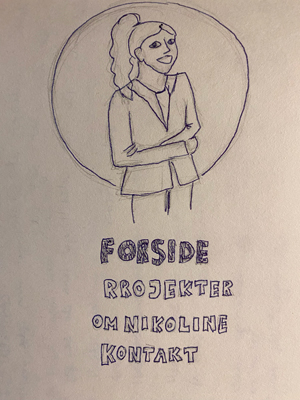 FORSIDE
RROJEKTER
OM NIKOLINE
KONTAKT